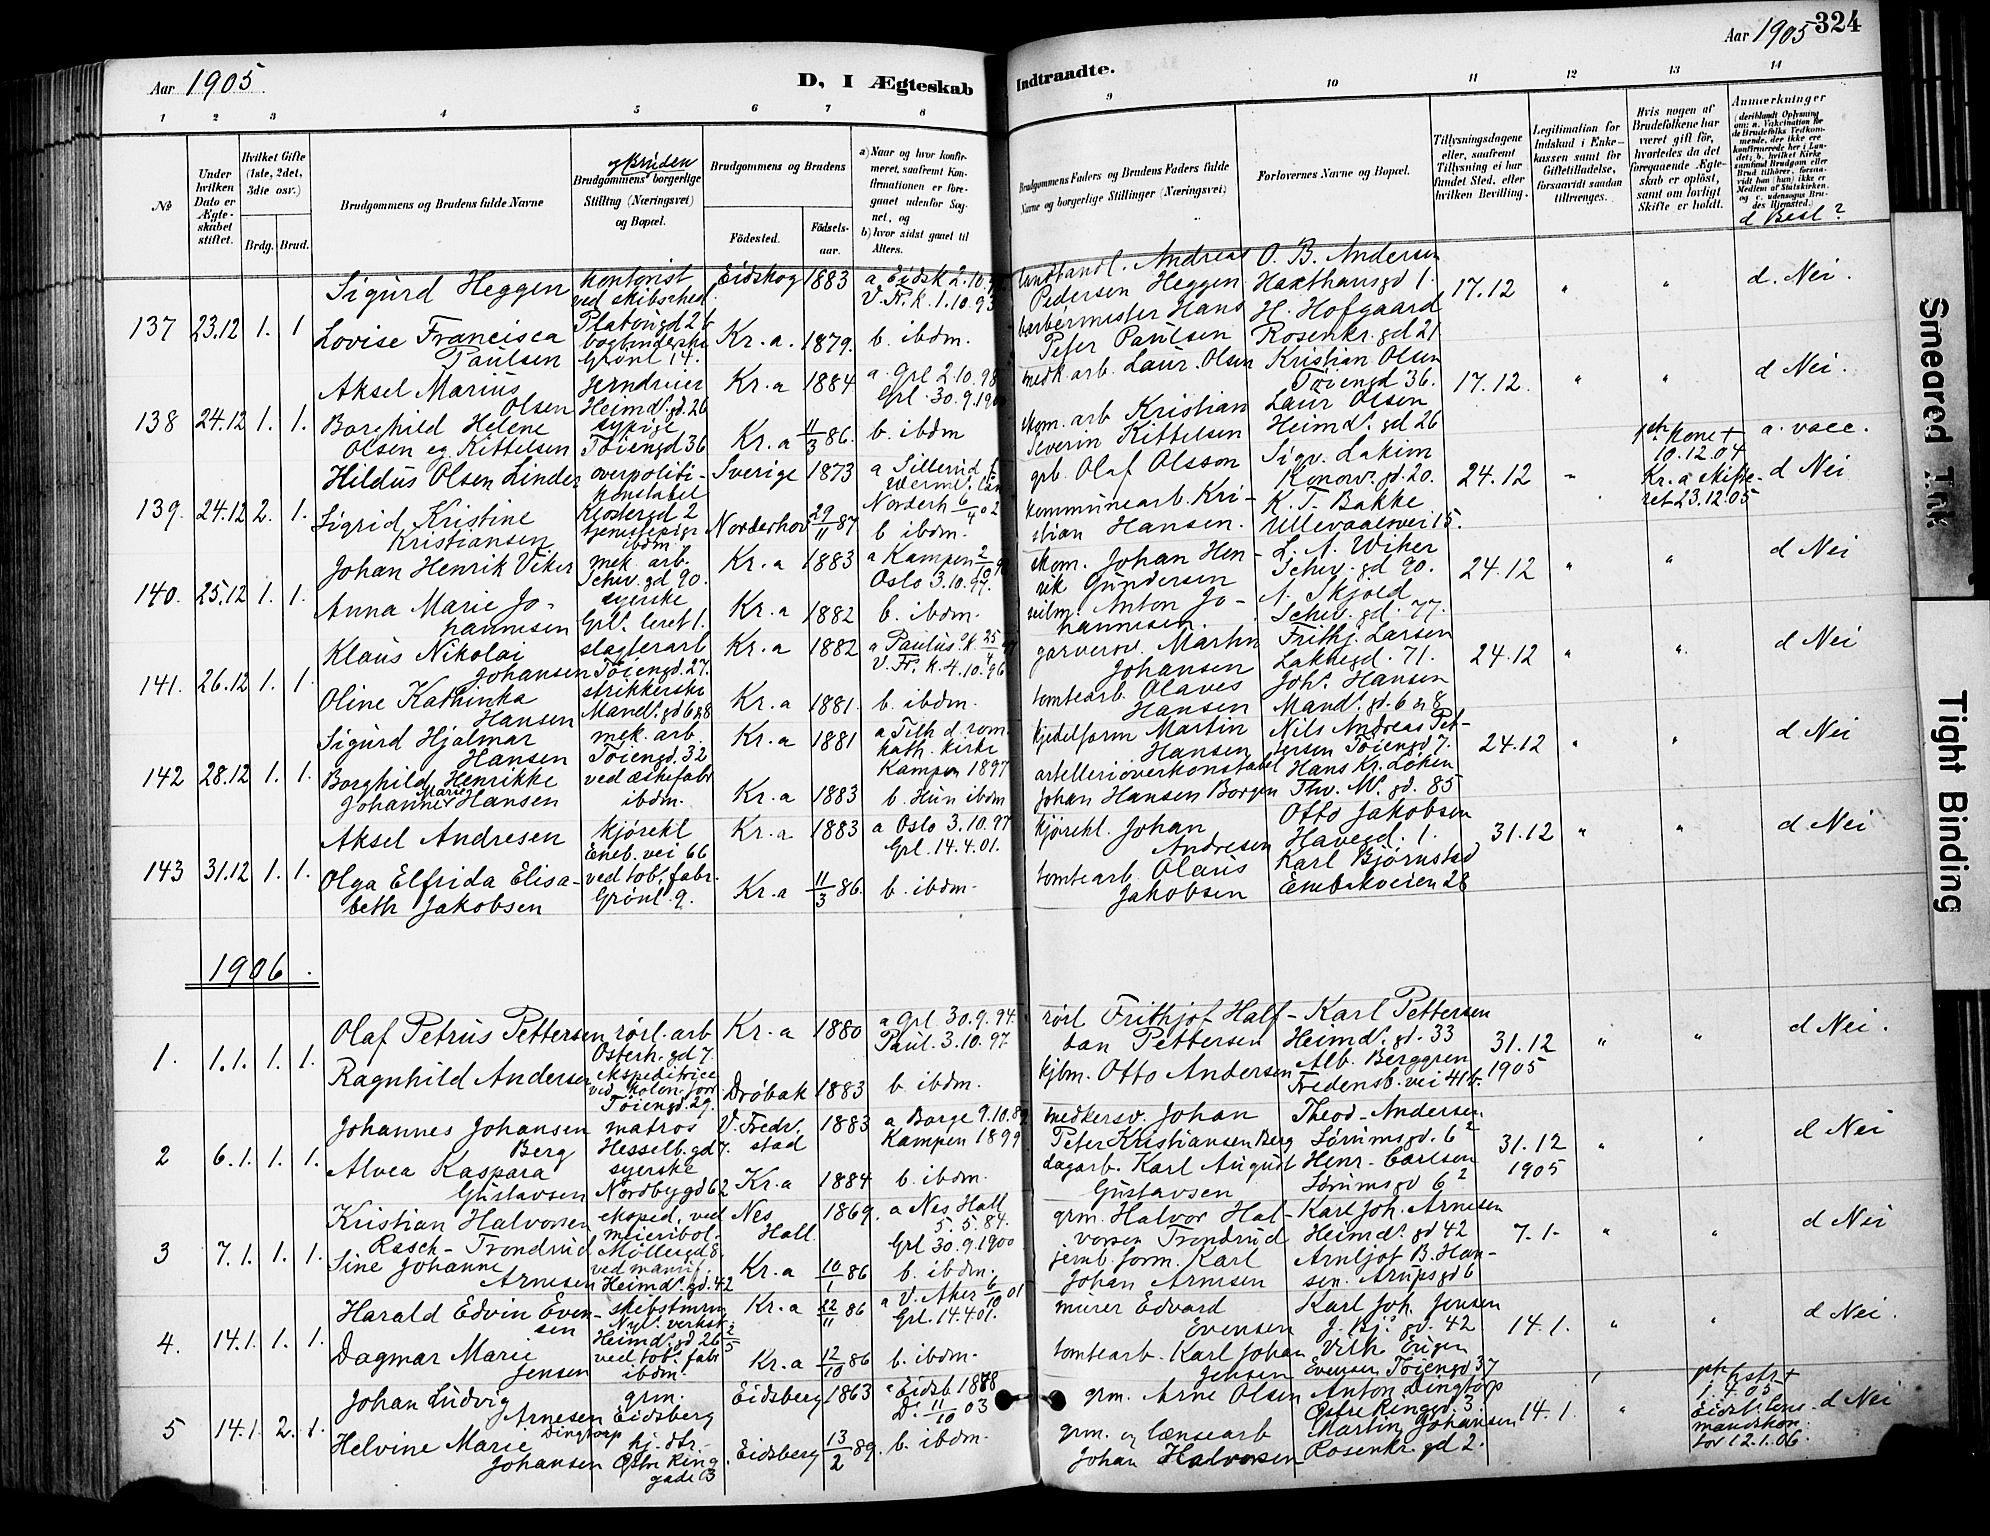 Aar 1905
D, I Ægteskab
Indtraadte.
Aar 1905 324
1 2 3 4 5 6 7 8 9 10 11 12 13 14
№
Under hvilken Dato er Ægteskabet stiftet.
Hvilket Gifte (1ste, 2det, 3die osv.)
Brdg. Brud.
Brudgommens og Brudens fulde Navne
og Bruden
Brudgommens borgerlige Stilling (Næringsvei) og Bopæl.
Brudgommens og Brudens
Födested. Födselsaar.
a) Naar og hvor konfirmeret, saafremt Konfirmationen er foregaaet udenfor Sognet, og
b) hvor sidst gaaet til Alters.
Brudgommens Faders og Brudens Faders fulde Navne og borgerlige Stillinger (Næringsvei)
Forlovernes Navne og Bopæl.
Tillysningsdagene eller, saafremt Tillysning ei har fundet Sted, efter hvilken Bevilling.
Legitimation for Indskud i Enkekassen samt for Giftetilladelse, forsaavidt saadan tiltrænges.
Hvis nogen af Brudefolkene har været gift för, hvorledes da det foregaaende Ægteskab er oplöst, samt om lovligt Skifte er holdt.
Anmærkninger
(deriblandt Oplysning om: a. Vakcination for de Brudefolks Vedkommende, der ikke ere konfirmerede her i Landet; b. hvilket Kirkesamfund Brudgom eller Brud tilhörer, forsaavidt han (hun) ikke er Medlem af Statskirken, og c. udensogns Brudes Hjemsted.)
d Besl?
137 23.12 1. 1
Sigurd Heggen kontorist ved skibsted. Platousgd 26 Eidskog 1883 a Eidsk 2.10. V. Fr. k. 1.10.93
landhandl. Andreas Pedersen Heggen O. B. Andersen Haxthausgd 1. 17.12 " " d. Nei.
Lovise Francisca Paulsen bogbinderske Grønl 14. Kr.a. 1879. b. ibdm.
barbermester Hans Peter Paulsen H. Hofgaard Rosenkr. gd 21
138 24.12 1. 1.
Aksel Marius Olsen Heimd. gd. 26 Kr.a 1884 a. Grl 2.10.98 Grl. 30.9.1900
medk arb. Laur. Olsen Kristian Olsen Tøiengd 36. 17.12. " " d Nei.
Borghild Helene Olsen eg. Kittelsen sypige Tøiengd 36 Kr.a 11/3 86. b. ibdm
skom. arb Kristian Severin Kittelsen Laur Olsen Heimd. gd 26
139. 24.12 2. 1.
Hildus Olsen Linder overpolitikonstabel Klostergd 2 Sverige 1873 a Sillerud Norderh 6/4 02
grb. Olaf Olsson Sigv. Lakim Konow. gd. 20. 24.12 " 1ste Kone + 10.12.04 Kr.a skifteret 23.12.05 a. vacc. d Nei
Sigrid Kristine Kristiansen tjenestepige ibdm. Norderhov 29/11 87 b ibdm.
kommunearb. Kristian Hansen. K. T. Bakke Ullevaalsvei 15.
140. 25.12 1. 1.
Johan Henrik Viker mek. arb. Schw. gd 90. Kr.a 1883 a Kampen 2/10 Oslo 3.10.97.
skom. Johan Henrik Gundersen L. A. Wiker Schw. gd 90. 24.12 " " d Nei
Anna Marie Johannesen syerske Grl. leret 1. Kr.a 1882 b. ibdm.
Anton Johannesen. A. Skjold Schw. gd. 77.
141. 26.12 1. 1.
Klaus Nikolai Johansen slagterarb Tøiengd. 27. Kr.a 1882 a Paulus. k. 25/4 V. Fr. k. 4.10.96
garversv. Martin Johansen Frithj. Larsen Lakkegd. 71. 24.12 " " d Nei
Oline Kathinka Hansen strikkerske Mand. gd 6 & 8 Kr.a 1881. b. ibdm.
tomtearb. Olaves Hansen Joh. Hansen Mand. gd. 6 & 8
142 28.12 1. 1.
Sigurd Hjalmar Hansen mek. arb. Tøiengd. 32 Kr.a 1881 a Tilh d. rom. kath. kirke Kampen 1897
kjedelform Martin Hansen Nils Andreas Pettersen Tøiengd 7. 24.12 " " d Nei
Borghild Henrikke Johanne Marie Hansen ved æskefabr ibdm. Kr.a 1883 b. Hun ibdm
artellerioverkonstabel Johan Hansen Borgen Hans Kr. Løken Thv. M. gd. 85
143 31.12 1. 1.
Aksel Andresen kjørekl Eneb. vei 66 Kr.a 1883 a Oslo 3.10.97 Grl. 14.4.01.
kjørekl. Johan Andresen Otto Jakobsen Havegd. 1. 31.12 " " d Nei
Olga Elfrida Elisabeth Jakobsen ved tob. fabr. Grønl. 9. Kr.a 11/3 86. b. ibdm.
tomtearb Olaus Jakobsen Karl Bjørnstad Enebakveien 28
1906.
1. 1.1. 1. 1.
Olaf Petrus Pettersen rørl. arb Osterh. gd 7. Kr.a 1880 a Grl 30.9.94. Paul. 3.10.97.
rørl Frithjof Halfdan Pettersen Karl Pettersen Heimd. gd. 33 31.12 1905 " " d Nei.
Ragnhild Andersen ekspeditrice ved kolon. forr Tøiengd. 29. Drøbak 1883 b. ibdm.
kjbm. Otto Andersen Alb. Berggren Fredensb. vei 41 b.
2 6.1. 1. 1.
Johannes Johansen Berg matros Hesselb. gd 7. V. Fredr. stad 1883 a Borge 9.10.8 Kampen 1899
medkersv. Johan Peter Kristiansen Berg Theod. Andersen Sørumsgd. 6² 31.12 1905 " " d Nei
Alvea Kaspara Gustavsen syerske Nordbygd 62 Kr.a 1884 b. ibdm.
dagarb. Karl August Gustavsen Henr. Carlsen Sørumsgd 6²
3 7.1. 1. 1.
Kristian Halvorsen Rasch-Trondrud eksped. ved meieribol. Møllergd 8 Nes Hall. 1869. a Nes Hall 5.5.84. Grl 30.9.1900
grm. Halvor Halvorsen Trondrud Karl Joh. Arnesen Heimd. gd 42 7.1. " " d Nei
Sine Johanne Arnesen ved manuf. Heimd. gd. 42 Kr.a 10/1 86 b. ibdm.
jernb. form. Karl Johan Arnesen Arnljot B. Hansen. Arupsgd 6
4. 14.1. 1. 1.
Harald Edvin Evensen skibstmrm Nyl. verksk. Heimd. gd 26 2/5 Kr.a 22/11 86 a V. Aker 6/10 01 Grl. 14.4.01.
murer Edvard Evensen Karl Joh. Jensen J. Bj. gd. 42 14.1. " " d Nei.
Dagmar Marie Jensen ved tob. fabr ibdm. Kr.a 12/10 86 b. ibdm.
tomtearb. Karl Johan Jensen Vilh. Eugen Evensen Tøiengd 37
5 14.1. 2. 1.
Johan Ludvig Arnesen Dingtorp grm. Eidsberg Eidsberg 1863 a Eidsb 1878 D. 11/10 03
grm. Arne Olsen Anton Dingtorp Østre Ringgd. 3. 14.1. " 1.4.05 Eidsb. lensmandskontor 12.1.06. d Nei
Helvine Marie Johansen hj. dtr. Østre Ringgade 3 Eidsberg 13/2 89. b. ibdm.
grm. og lænsearb Johan Halvorsen Martin Johansen Rosenkr. gd 2.
Smeared Ink
Tight Binding